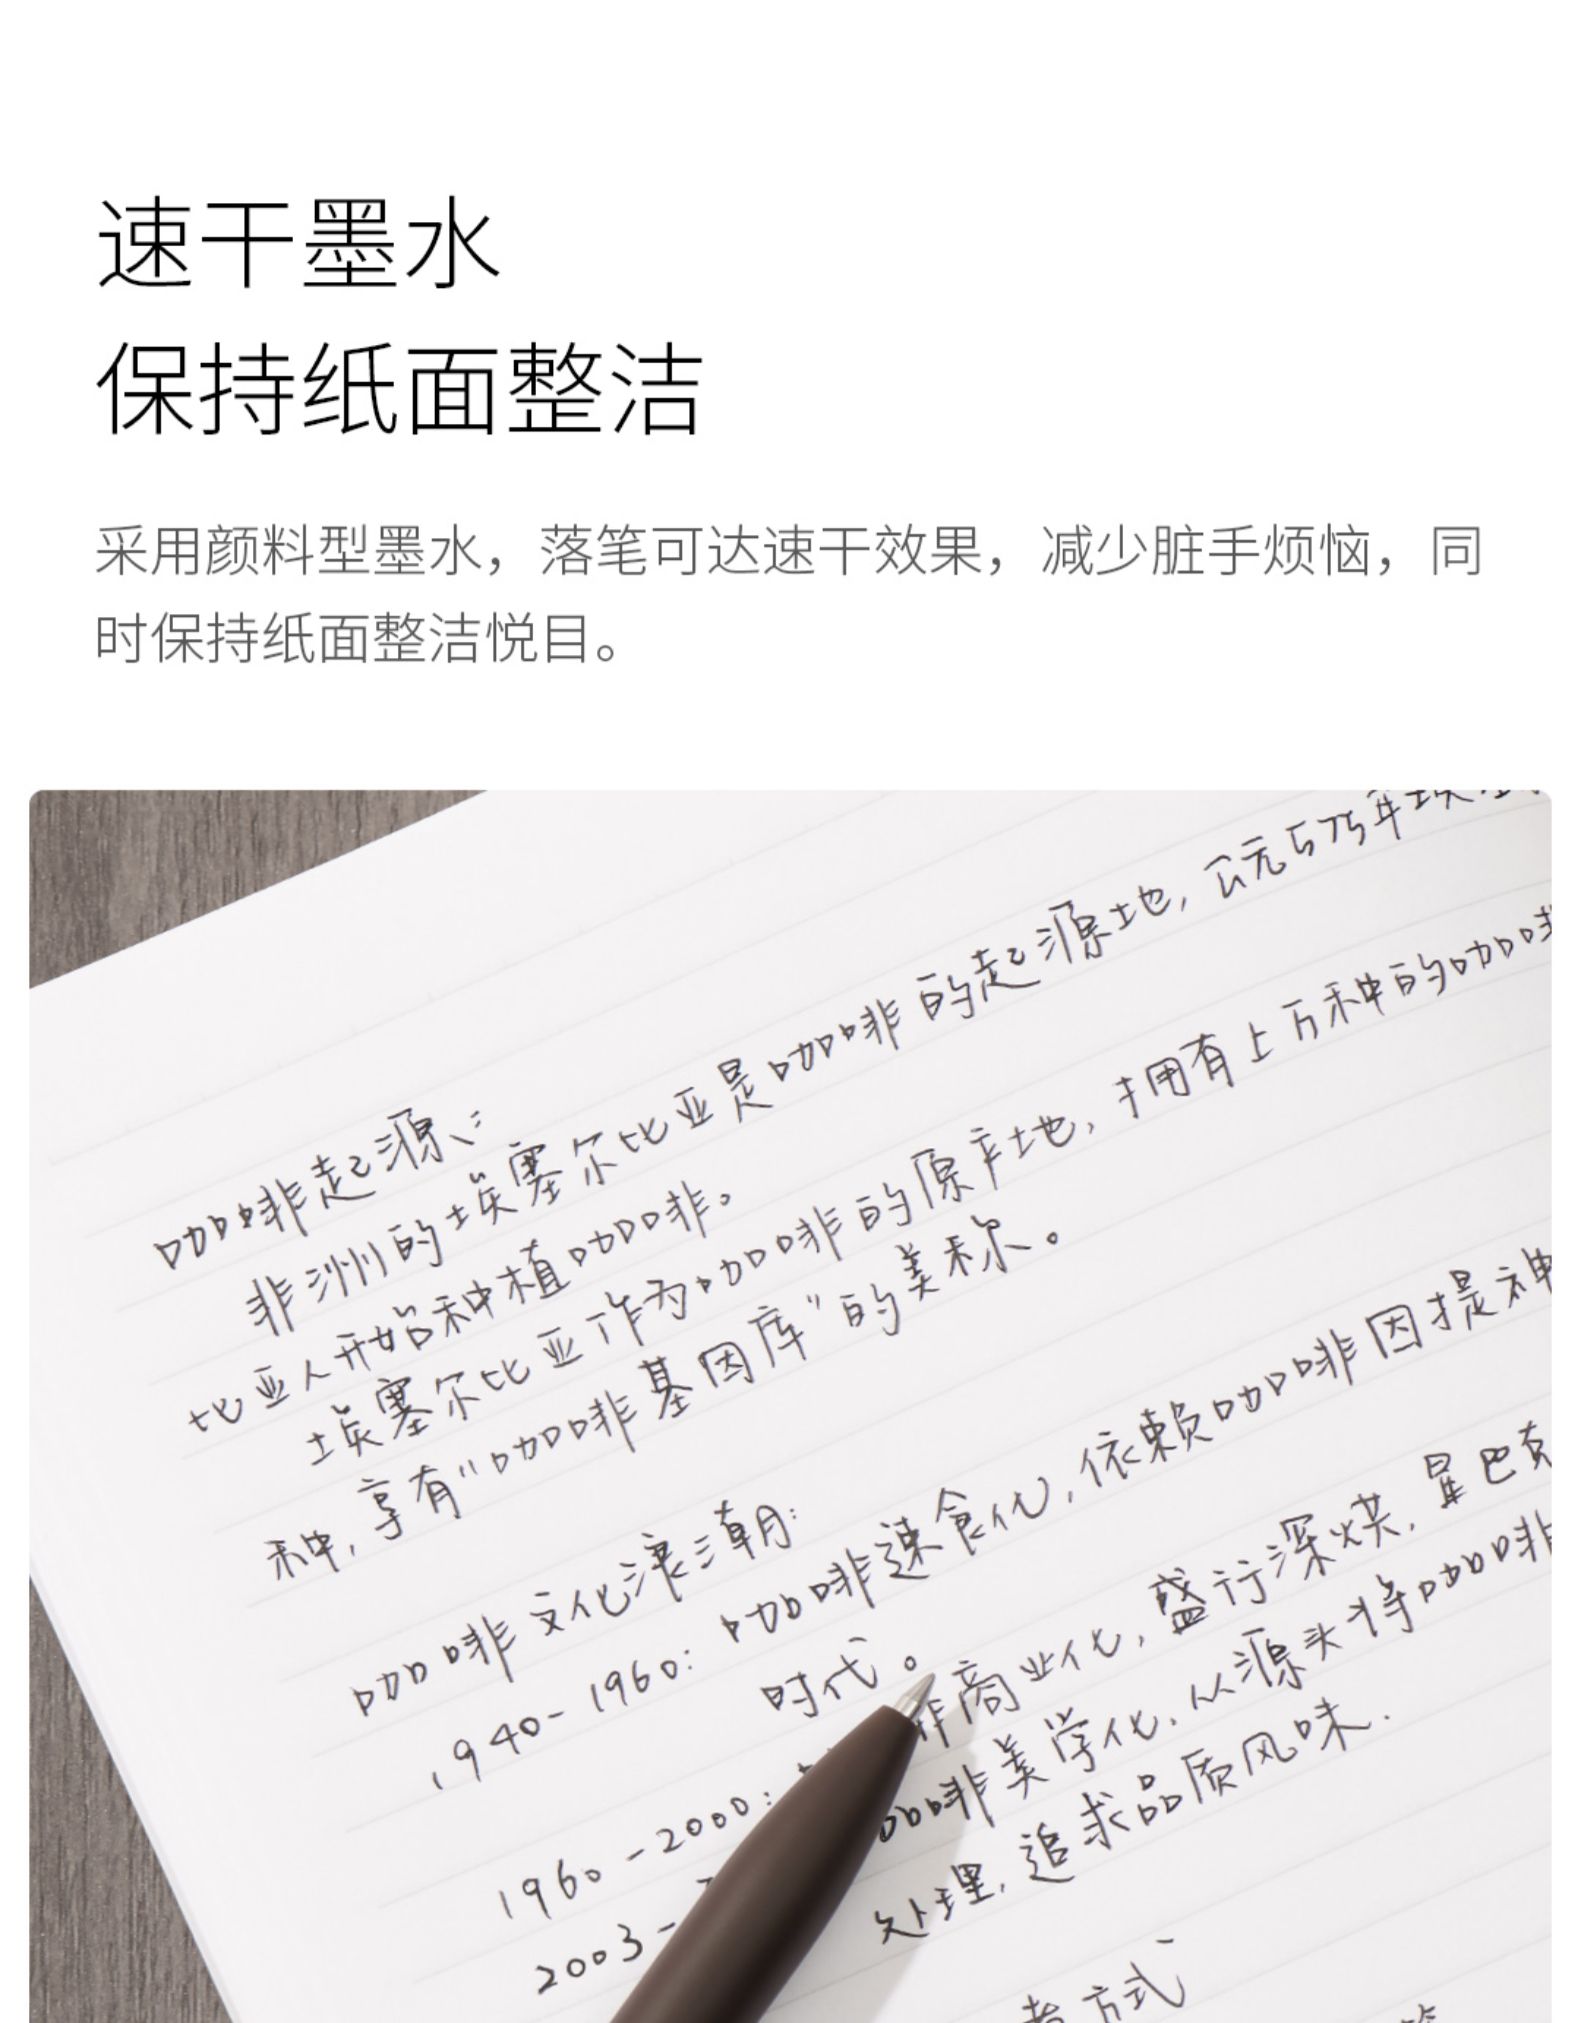 速干墨水
保持纸面整洁
采用颜料型墨水，落笔可达速干效果，减少脏手烦恼，同
时保持纸面整洁悦目。
咖啡起源：
非洲的埃塞尔比亚是咖啡的起源地，公元575年埃塞
比亚人开始种植咖啡。
埃塞尔比亚作为咖啡的原产地，拥有上万种的咖啡
种，享有“咖啡基因库”的美称。
咖啡文化浪潮：
1940-1960：咖啡速食化，依赖咖啡因提神
时代。
1960-2000： 啡商业化，盛行深烘，星巴克
2003- 咖啡美学化，从源头将咖啡
处理，追求品质风味.
方式